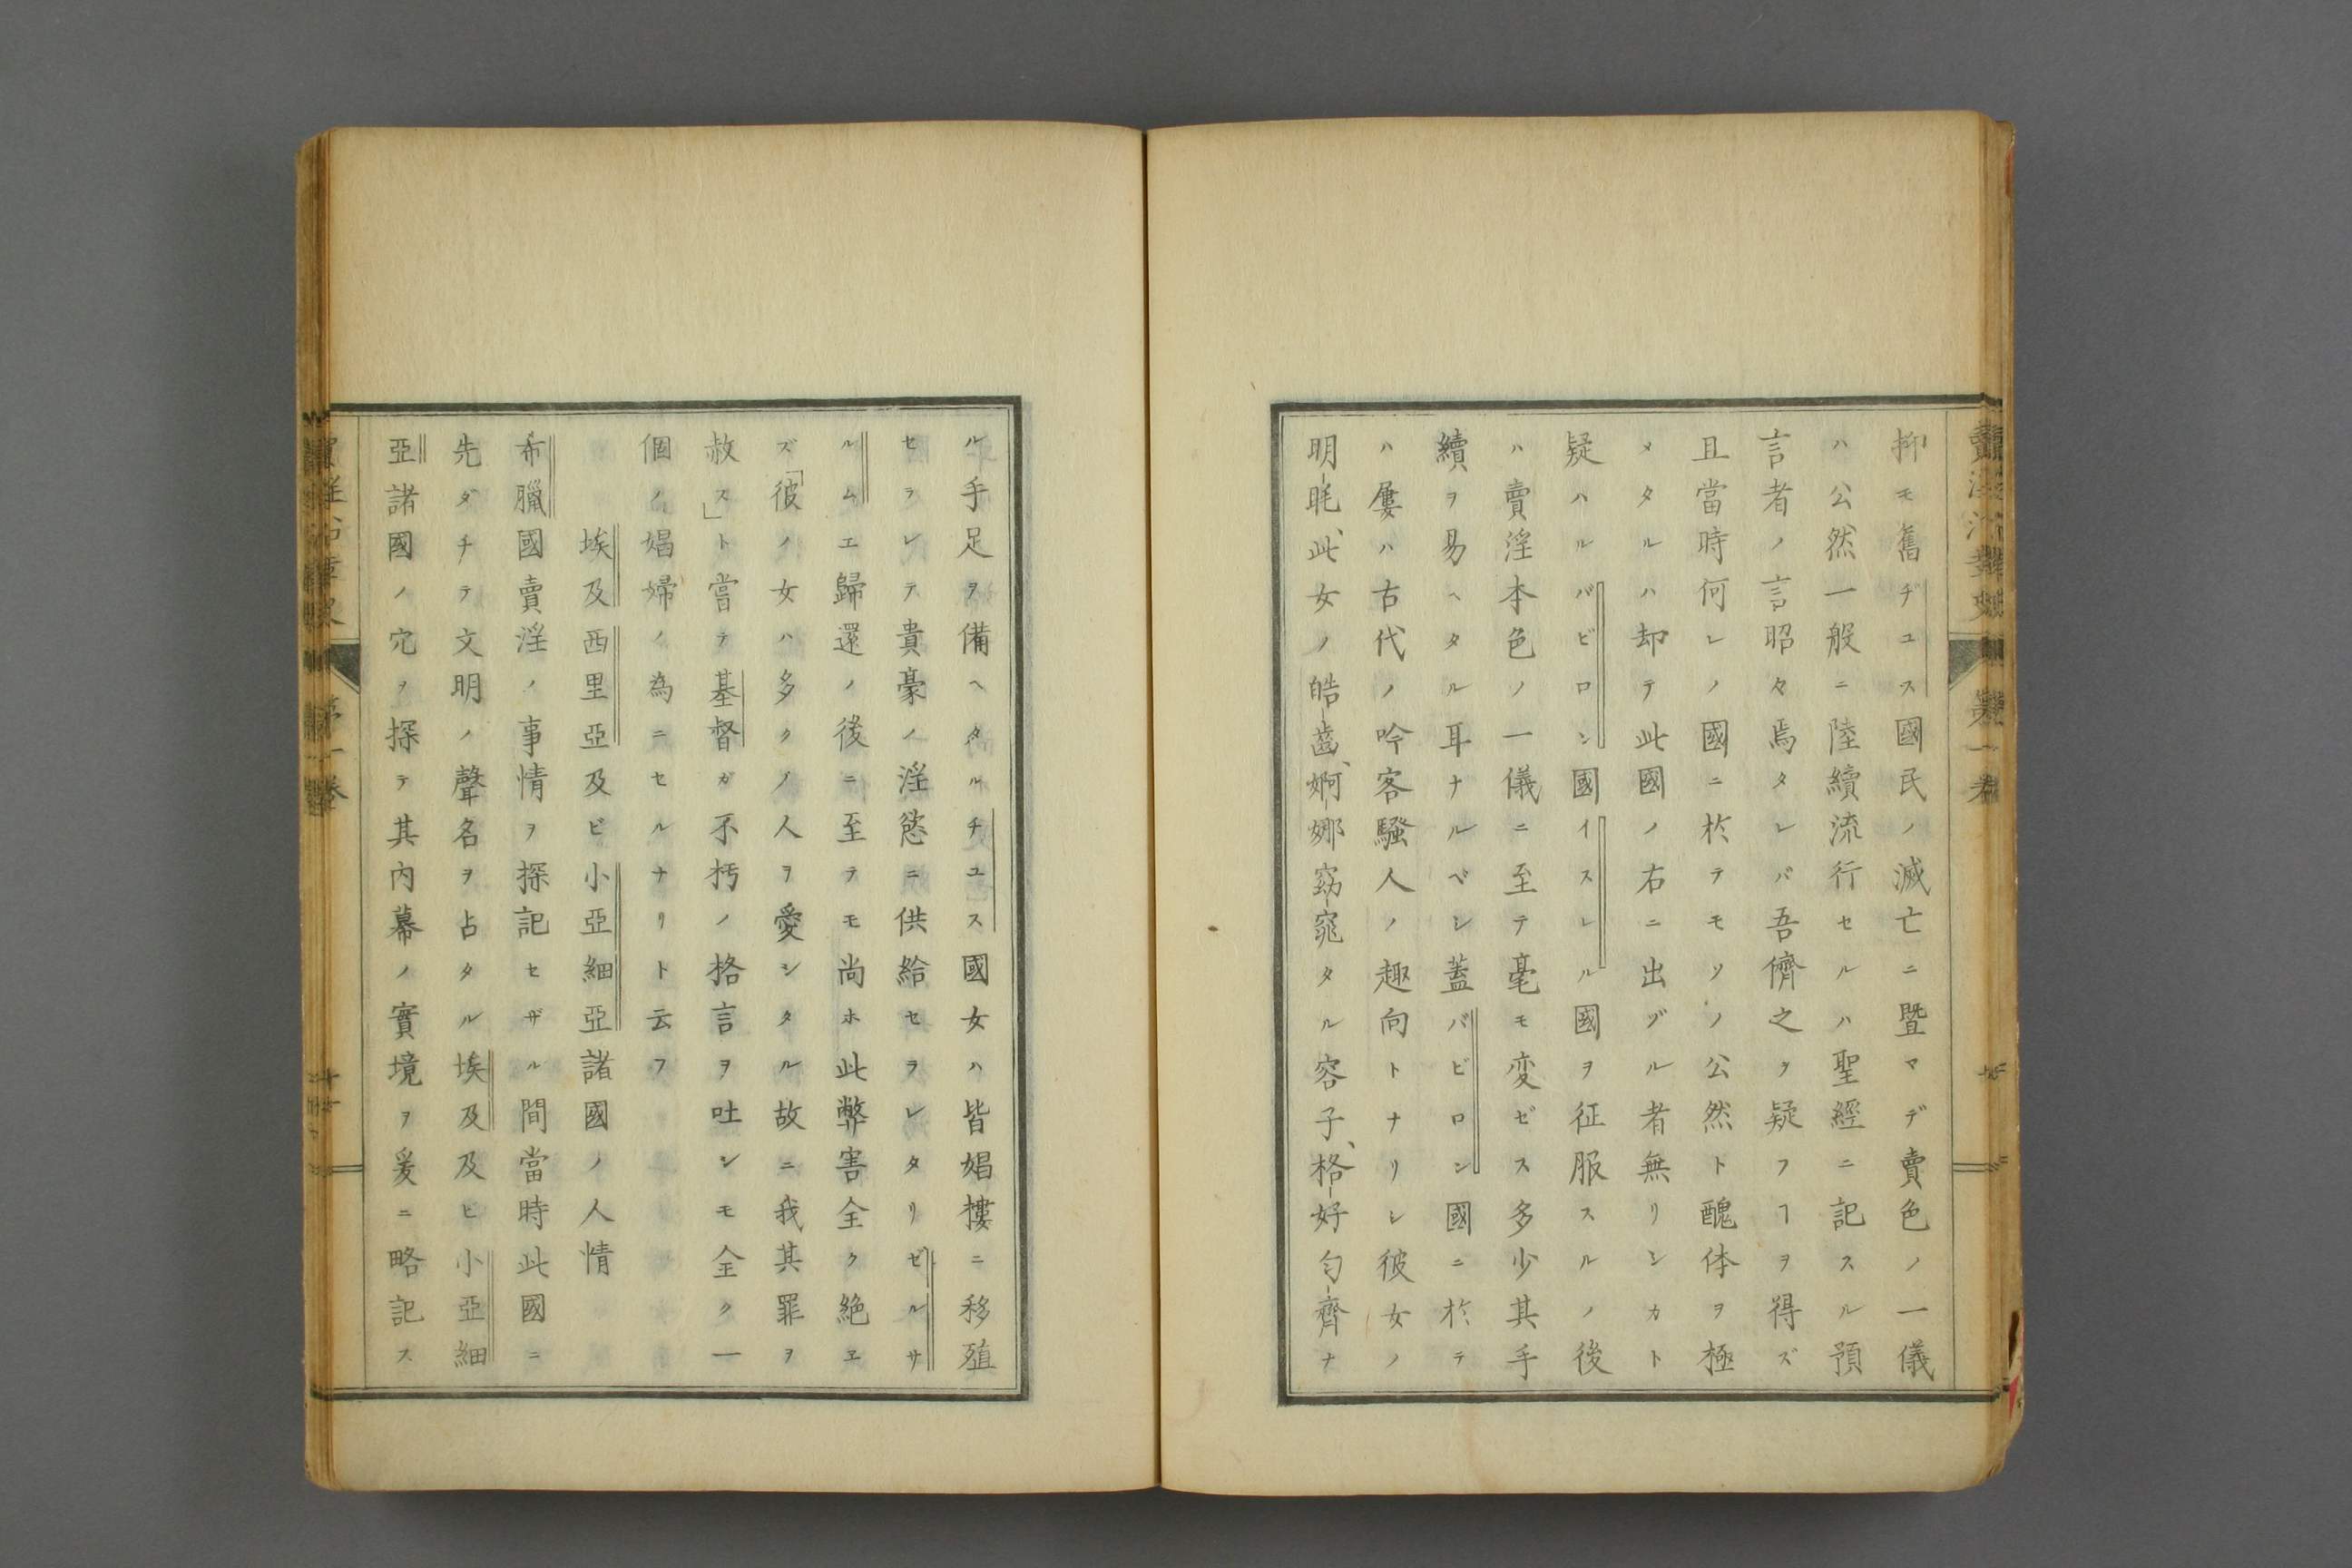 抑モ舊ヂユス國民ノ滅亡ニ暨マデ賣色ノ一儀
ハ公然一般ニ陸續流行セルハ聖經ニ記スル預
言者ノ言昭々焉タレバ吾儕之ヲ疑フヿヲ得ズ
且當時何レノ國ニ於テモソノ公然ト醜体ヲ極
メタルハ却テ此國ノ右ニ出ヅル者無リシカト
疑ハルバビロン國イスレル國ヲ征服スルノ後
ハ賣淫本色ノ一儀ニ至テ毫モ変ゼス多少其手
續ヲ易ヘタル耳ナルベシ蓋バビロン國ニ於テ
ハ屢ハ古代ノ吟客騷人ノ趣向トナリシ彼女ノ
明眊、此女ノ皓齒、婀娜窈窕タル容子、格好匀齊ナ
ル手足ヲ備ヘタルチユス國女ハ皆娼樓ニ移殖
セラレテ貴豪ノ淫慾ニ供給セラレタリゼルサ
ルムエ歸還ノ後ニ至テモ尚ホ此弊害全ク絶エ
ズ「彼ノ女ハ多クノ人ヲ愛シタル故ニ我其罪ヲ
赦ス」ト嘗テ基督ガ不朽ノ格言ヲ吐シモ全ク一
個ノ娼婦ノ為ニセルナリト云フ
埃及西里亞及ビ小亞細亞諸國ノ人情
希臘國賣淫ノ事情ヲ探記セザル間當時此國ニ
先ダチテ文明ノ聲名ヲ占タル埃及及ヒ小亞細
亞諸國ノ穴ヲ探テ其内幕ノ實境ヲ爰ニ略記ス